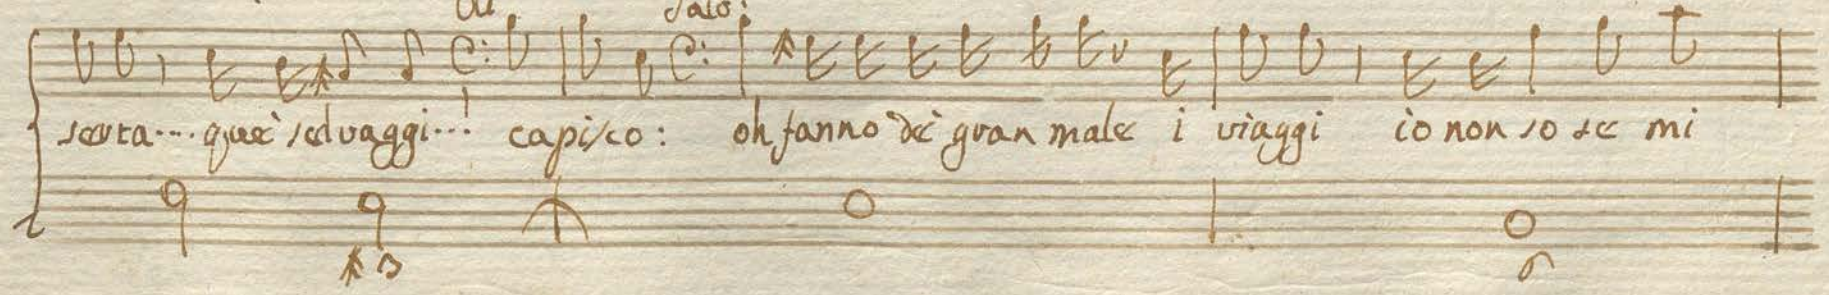 Salo:
scorta.... que' selvaggi...! capisco: oh fanno de' gran male i viaggi io non so se mi
3
6